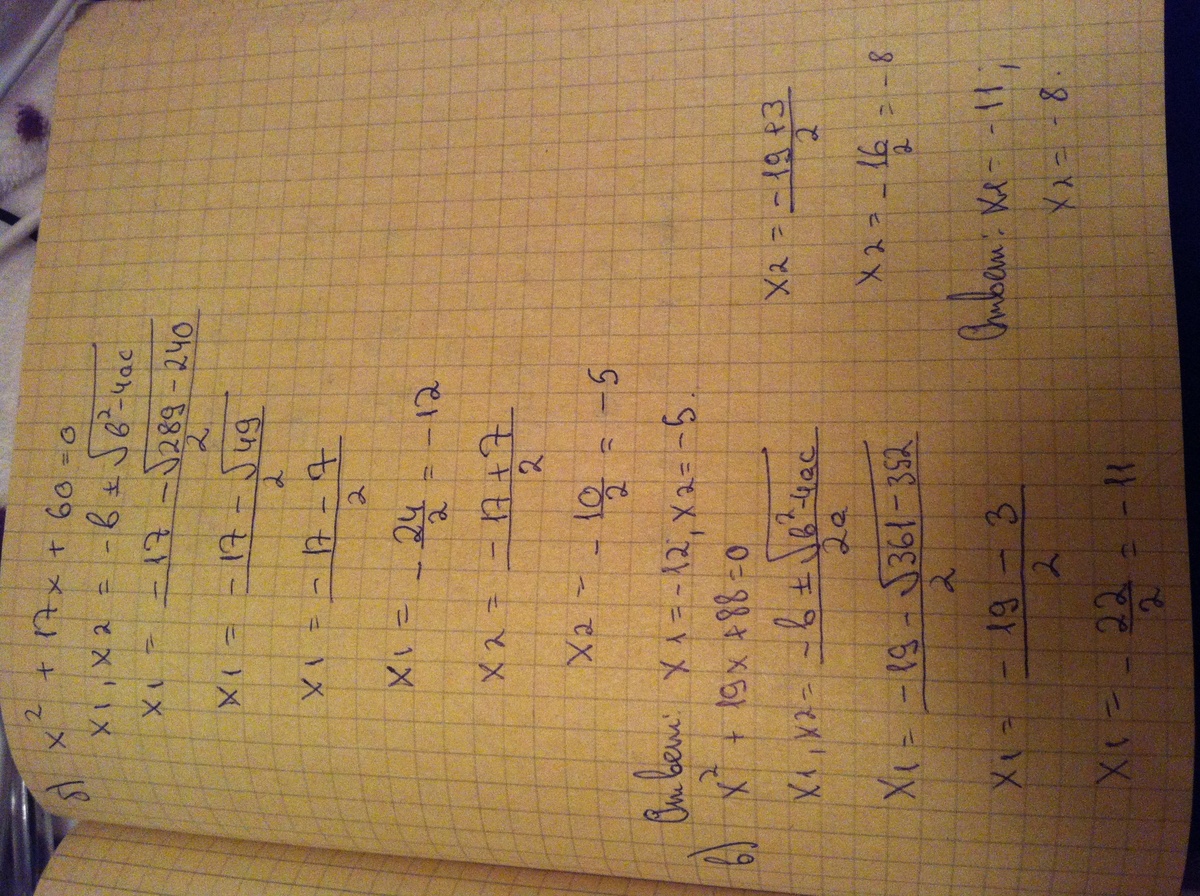 б) x² + 17x + 60 = 0
x₁, x₂ = -b ± √(b² - 4ac)
x₁ = (-17 - √(289 - 240))/2
x₁ = (-17 - √49)/2
x₁ = (-17 - 7)/2
x₁ = -24/2 = -12
x₂ = (-17 + 7)/2
x₂ = -10/2 = -5
Ответ: x₁ = -12, x₂ = -5.
в) x² + 19x + 88 = 0
x₁, x₂ = (-b ± √(b² - 4ac))/2a
x₁ = (-19 - √(361 - 352))/2
x₁ = (-19 - 3)/2
x₁ = -22/2 = -11
x₂ = (-19 + 3)/2
x₂ = -16/2 = -8
Ответ: x₁ = -11;
x₂ = -8.